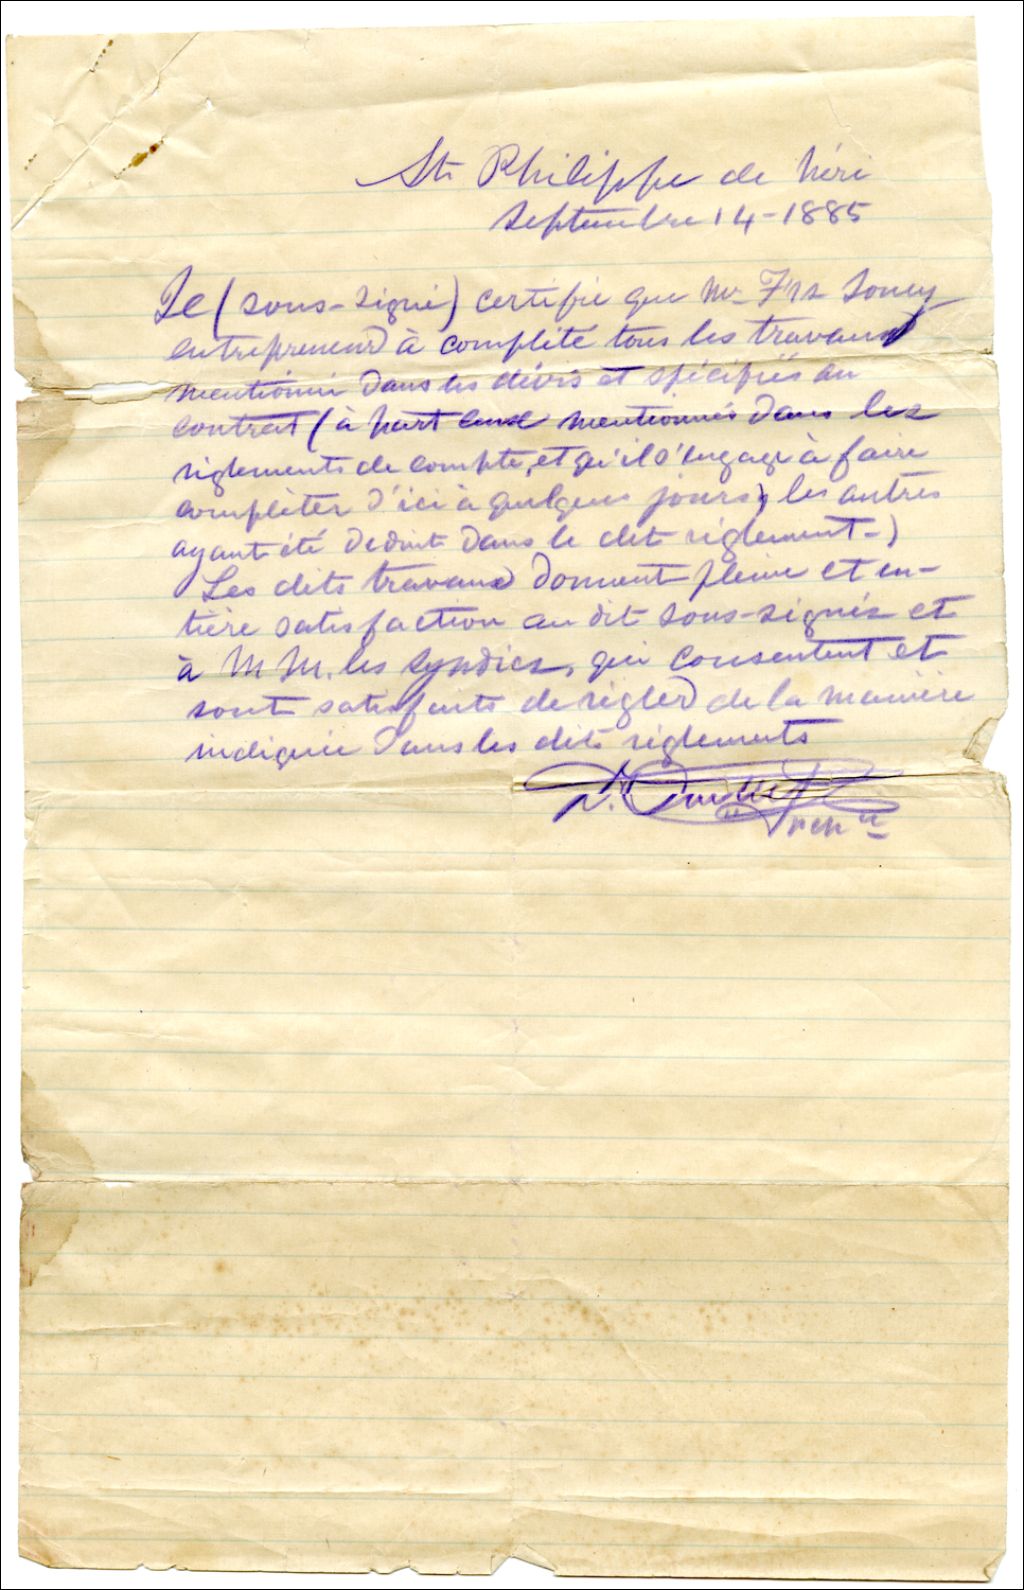 St Philippe de Néri
Septembre 14-1885
Je (sous-signé) certifie que Mr Frs Soucy
entrepreneur à complété tous les travaux
mentionné dans les dévis et spécifiés au
contrat (à part ceux mentionnés dans les
règlements de compte, et qu'il s'engage à faire
compléter d'ici à quelques jours, les autres
ayant été déduit dans le dit règlement-)
Les dits travaux donnent pleine et en-
tière satisfaction au dit sous-signés et
à M M. les Syndics, qui consentent et
sont satisfaits de régler de la manière
indiquée dans les dits règlements
Archte